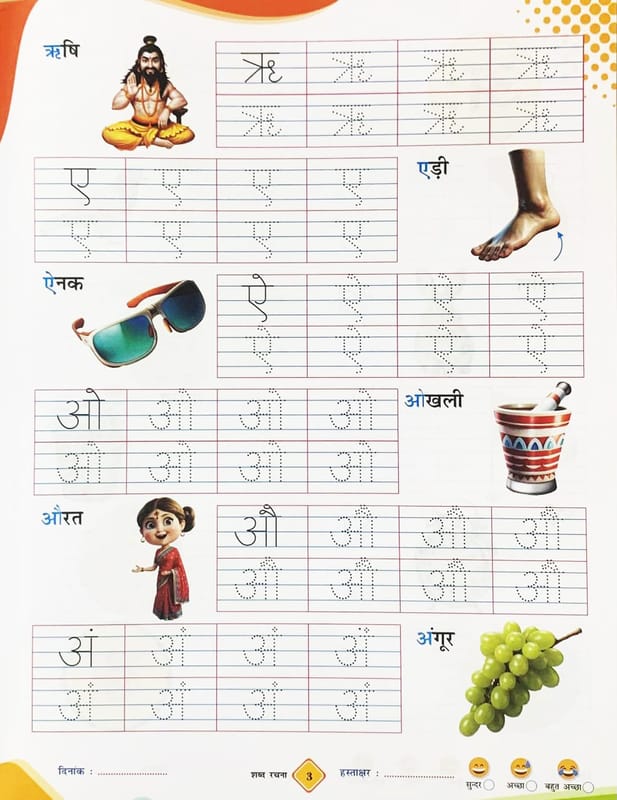 ऋषि
ऋ ऋ ऋ ऋ
ऋ ऋ ऋ ऋ
ए ए ए ए
एड़ी
ए ए ए ए
ऐनक
ऐ ऐ ऐ ऐ
ऐ ऐ ऐ ऐ
ओ ओ ओ ओ
ओखली
ओ ओ ओ ओ
औरत
औ औ औ औ
औ औ औ औ
अं अं अं अं
अंगूर
अं अं अं अं
दिनांक : ........................
शब्द रचना 3 हस्ताक्षर : ........................
सुन्दर अच्छा बहुत अच्छा